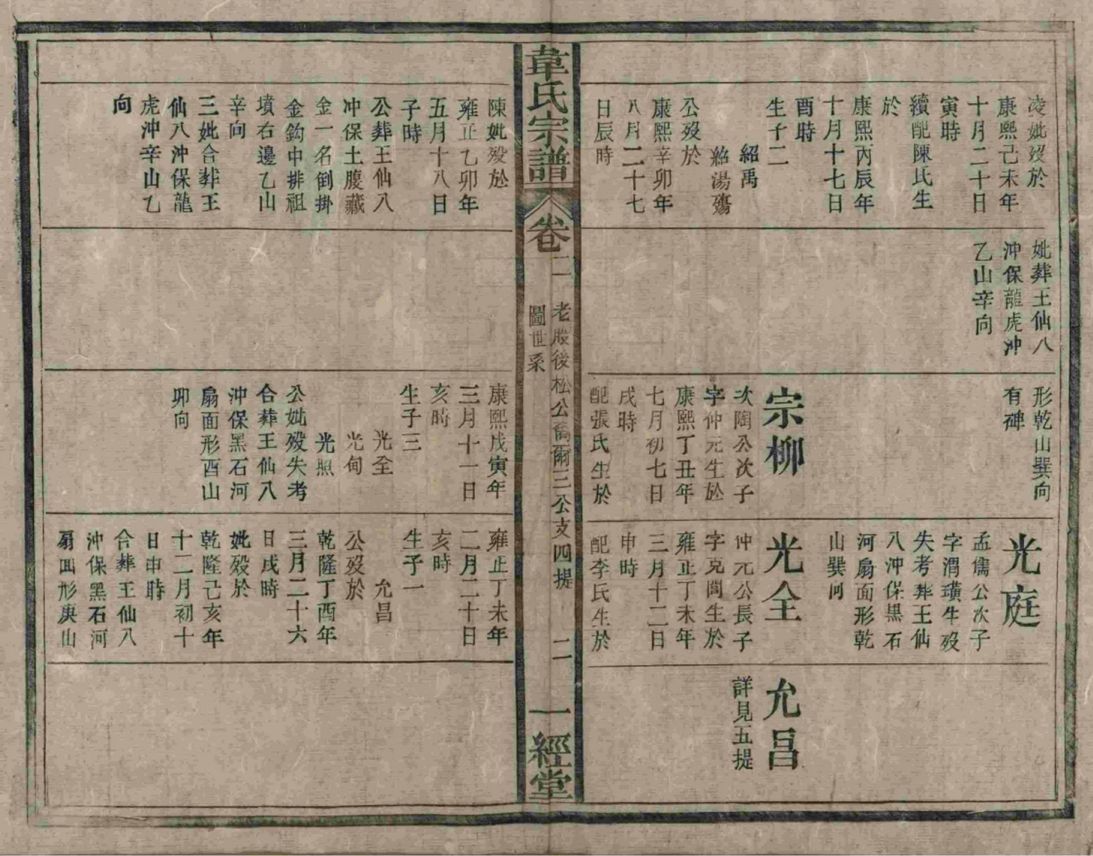 凌妣歿於
康熙己未年
十月二十日
寅時
續配陳氏生
於
康熙丙辰年
十月十七日
酉時
生子二
紹禹
紹湯殤
公歿於
康熙辛卯年
八月二十七
日辰時
妣葬王仙八
沖保龍虎沖
乙山辛向
形乾山巽向
有碑
宗柳
次陶公次子
字仲元生於
康熙丁丑年
七月初七日
戌時
配張氏生於
光庭
孟儒公次子
字渭璜生歿
失考葬王仙
八沖保黑石
河扇面形乾
山巽向
光全
仲元公長子
字克閩生於
雍正丁未年
三月十二日
申時
配李氏生於
允昌
詳見五提
韋氏宗譜
卷二
老殿後松公喬爾三公支四提
圖世系
二
一經堂
陳妣歿於
雍正乙卯年
五月十八日
子時
公葬王仙八
沖保土腹藏
金一名倒掛
金鈎中排祖
墳右邊乙山
辛向
三妣合葬王
仙八沖保龍
虎沖辛山乙
向
康熙戊寅年
三月十一日
亥時
生子三
光全
光甸
光照
公妣歿失考
合葬王仙八
沖保黑石河
扇面形酉山
卯向
雍正丁未年
二月二十日
亥時
生子一
允昌
公歿於
乾隆丁酉年
三月二十六
日戌時
妣歿於
乾隆己亥年
十二月初十
日申時
合葬王仙八
沖保黑石河
扇面形庚山